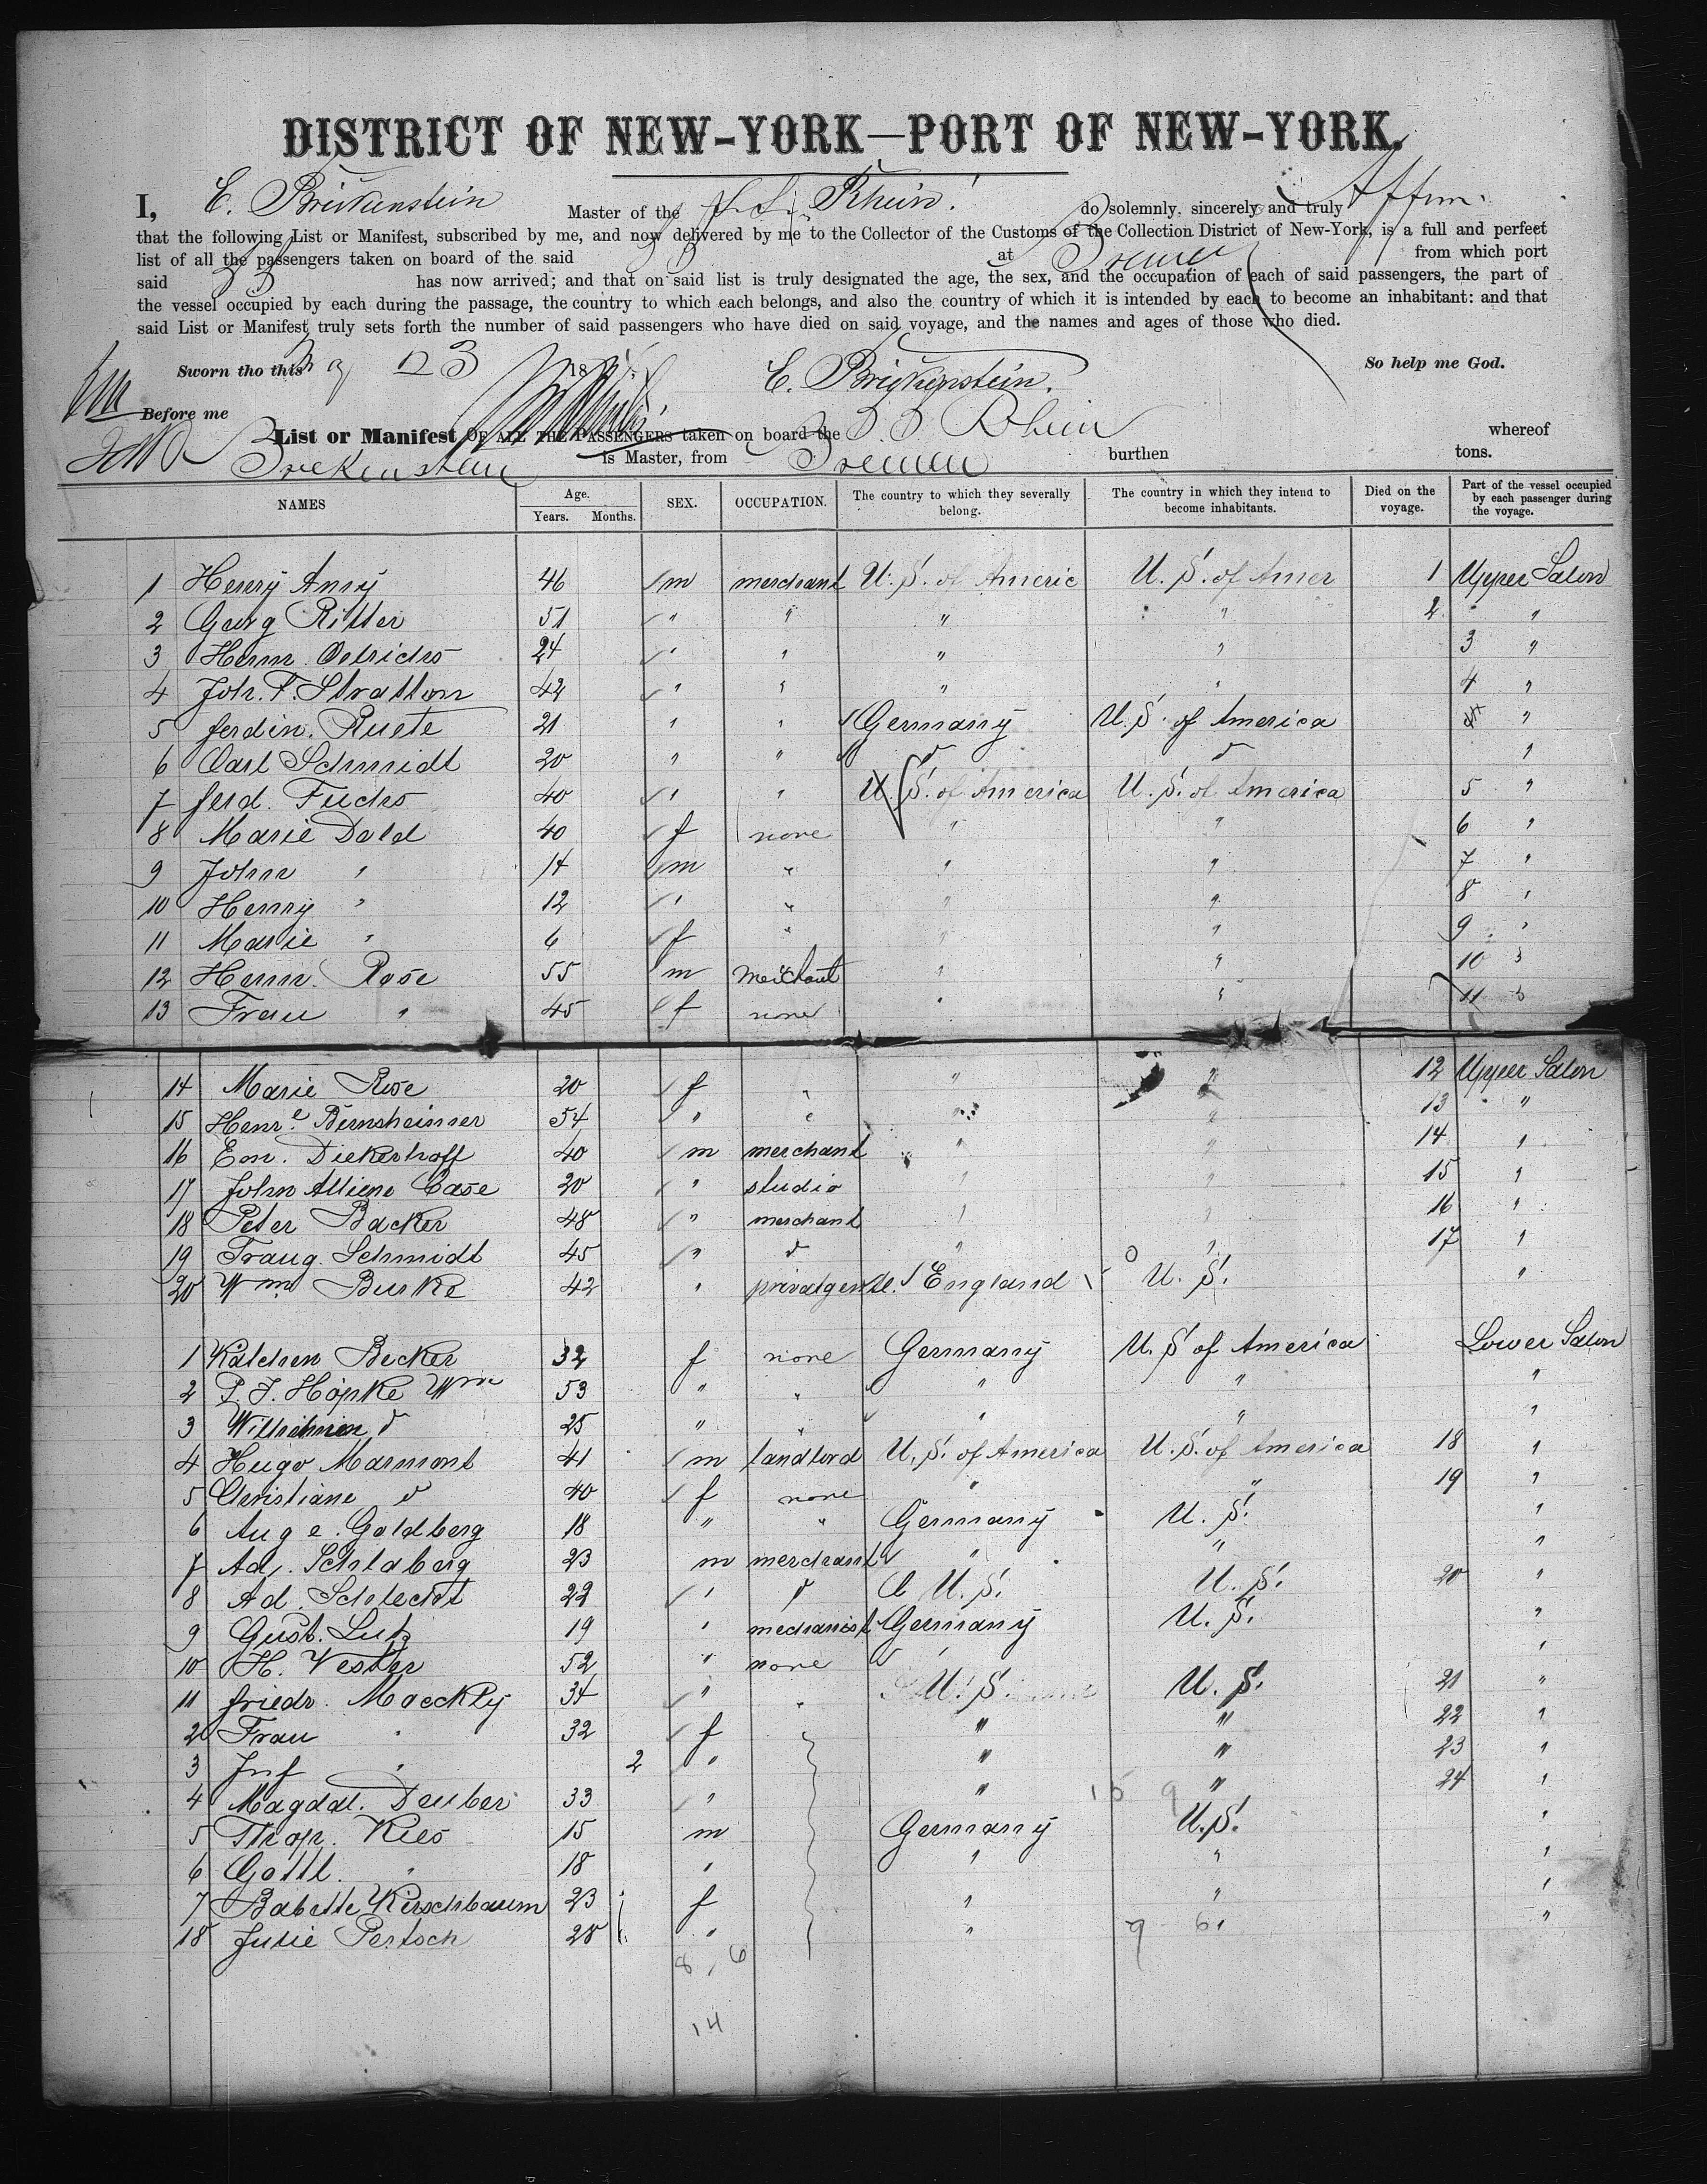 DISTRICT OF NEW-YORK—PORT OF NEW-YORK.
I, E. Brickenstein Master of the S.S. Rhein! do solemnly, sincerely and truly Affirm
that the following List or Manifest, subscribed by me, and now delivered by me to the Collector of the Customs of the Collection District of New-York, is a full and perfect
list of all the passengers taken on board of the said at Bremen from which port
said has now arrived; and that on said list is truly designated the age, the sex, and the occupation of each of said passengers, the part of
the vessel occupied by each during the passage, the country to which each belongs, and also the country of which it is intended by each to become an inhabitant: and that
said List or Manifest truly sets forth the number of said passengers who have died on said voyage, and the names and ages of those who died.
Sworn tho this 23 18 E. Brickenstein. So help me God.
Before me
List or Manifest OF ALL THE PASSENGERS taken on board the S S Rhein whereof
is Master, from Bremen burthen tons.
NAMES Age. Years. Months. SEX. OCCUPATION. The country to which they severally belong. The country in which they intend to become inhabitants. Died on the voyage. Part of the vessel occupied by each passenger during the voyage.
1 Henry Amy 46 m merchant U. S. of Americ U. S. of Amer 1 Upper Salon
2 Georg Ritter 51 " " " " 2 " "
3 Herm. Oelrichs 24 " " " " 3 "
4 Joh. F. Stratton 42 " " " " 4 "
5 ferdin. Ruete 21 " " Germany U. S. of America "
6 Carl Schmidt 20 " " d d "
7 ferd. Fuchs 40 " " U. S. of America U. S. of America 5 "
8 Marie Dold 40 f none " " 6 "
9 John " 14 m " " " 7 "
10 Henry " 12 " " " " 8 "
11 Marie " 6 f " " " 9 "
12 Herm. Rose 55 m merchant " " 10 "
13 Frau " 45 f none " " 11 "
14 Marie Rose 20 f " " " 12 Upper Salon
15 Henr.e Bernsheimer 54 " " " " 13 "
16 Em. Diekerhoff 40 m merchant " " 14 "
17 John Case 20 " studio " " 15 "
18 Peter Backer 48 " merchant " " 16 "
19 Traug. Schmidt 45 " d " " 17 "
20 Wm Burke 42 " privatgentl. England U. S. "
1 Katchen Becker 32 f none Germany U. S of America Lower Salon
2 P. J. Höpke Wwe 53 " " " " "
3 d 25 " " " " "
4 Hugo Marmont 41 m landlord U. S. of America U. S. of America 18 "
5 Christiane d 40 f none " " 19 "
6 Aug e. Goldberg 18 " " Germany U. S. "
7 Ad. Schlaberg 23 m merchant " " "
8 Ad. Schlecht 22 " d U. S. U. S. 20 "
9 Gust. Lutz 19 " mechanist Germany U. S. "
10 H. Vester 52 " none " "
11 friedr. Maeckly 34 " " U. S. U. S. 21 "
2 Frau " 32 f " " 22 "
3 Inf " 2 " " " 23 "
4 Magdal. Deuber 33 " " " 24 "
15 9
5 Kies 15 m Germany U.S. "
6 Gottl. " 18 " " " "
7 Babette Kirschbaum 23 f " " "
18 Julie Pertsch 28 " " "
9 6
8, 6
14